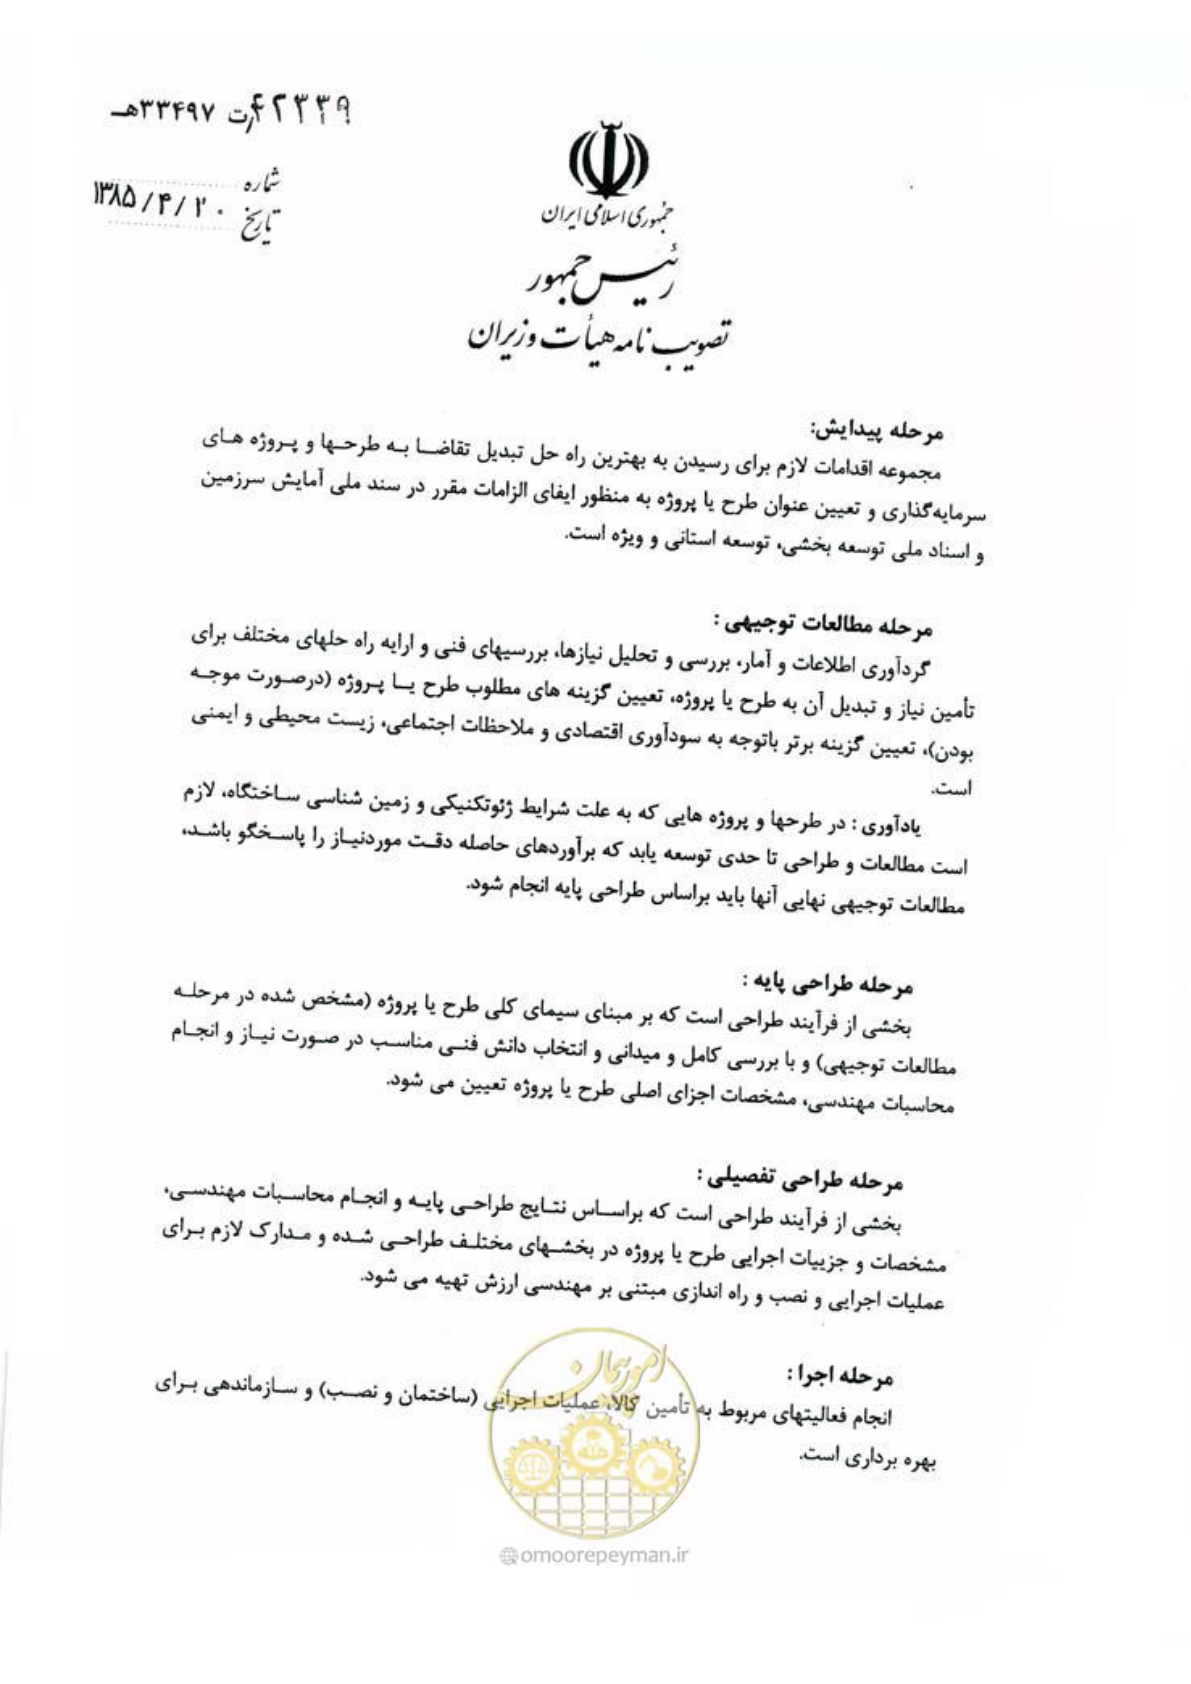 ۴۲۳۳۹/ت ۳۳۴۹۷هـ
شماره
تاریخ ۱۳۸۵/۴/۲۰
جمهوری اسلامی ایران
رئیس جمهور
تصویب نامه هیأت وزیران
مرحله پیدایش:
مجموعه اقدامات لازم برای رسیدن به بهترین راه حل تبدیل تقاضا به طرحها و پروژه های
سرمایه‌گذاری و تعیین عنوان طرح یا پروژه به منظور ایفای الزامات مقرر در سند ملی آمایش سرزمین
و اسناد ملی توسعه بخشی، توسعه استانی و ویژه است.
مرحله مطالعات توجیهی :
گردآوری اطلاعات و آمار، بررسی و تحلیل نیازها، بررسیهای فنی و ارایه راه حلهای مختلف برای
تأمین نیاز و تبدیل آن به طرح یا پروژه، تعیین گزینه های مطلوب طرح یا پروژه (درصورت موجه
بودن)، تعیین گزینه برتر باتوجه به سودآوری اقتصادی و ملاحظات اجتماعی، زیست محیطی و ایمنی
است.
یادآوری : در طرحها و پروژه هایی که به علت شرایط ژئوتکنیکی و زمین شناسی ساختگاه، لازم
است مطالعات و طراحی تا حدی توسعه یابد که برآوردهای حاصله دقت موردنیاز را پاسخگو باشد،
مطالعات توجیهی نهایی آنها باید براساس طراحی پایه انجام شود.
مرحله طراحی پایه :
بخشی از فرآیند طراحی است که بر مبنای سیمای کلی طرح یا پروژه (مشخص شده در مرحله
مطالعات توجیهی) و با بررسی کامل و میدانی و انتخاب دانش فنی مناسب در صورت نیاز و انجام
محاسبات مهندسی، مشخصات اجزای اصلی طرح یا پروژه تعیین می شود.
مرحله طراحی تفصیلی :
بخشی از فرآیند طراحی است که براساس نتایج طراحی پایه و انجام محاسبات مهندسی،
مشخصات و جزییات اجرایی طرح یا پروژه در بخشهای مختلف طراحی شده و مدارک لازم برای
عملیات اجرایی و نصب و راه اندازی مبتنی بر مهندسی ارزش تهیه می شود.
مرحله اجرا :
انجام فعالیتهای مربوط به تأمین کالا، عملیات اجرایی (ساختمان و نصب) و سازماندهی برای
بهره برداری است.
امور پیمان
@omoorepeyman.ir